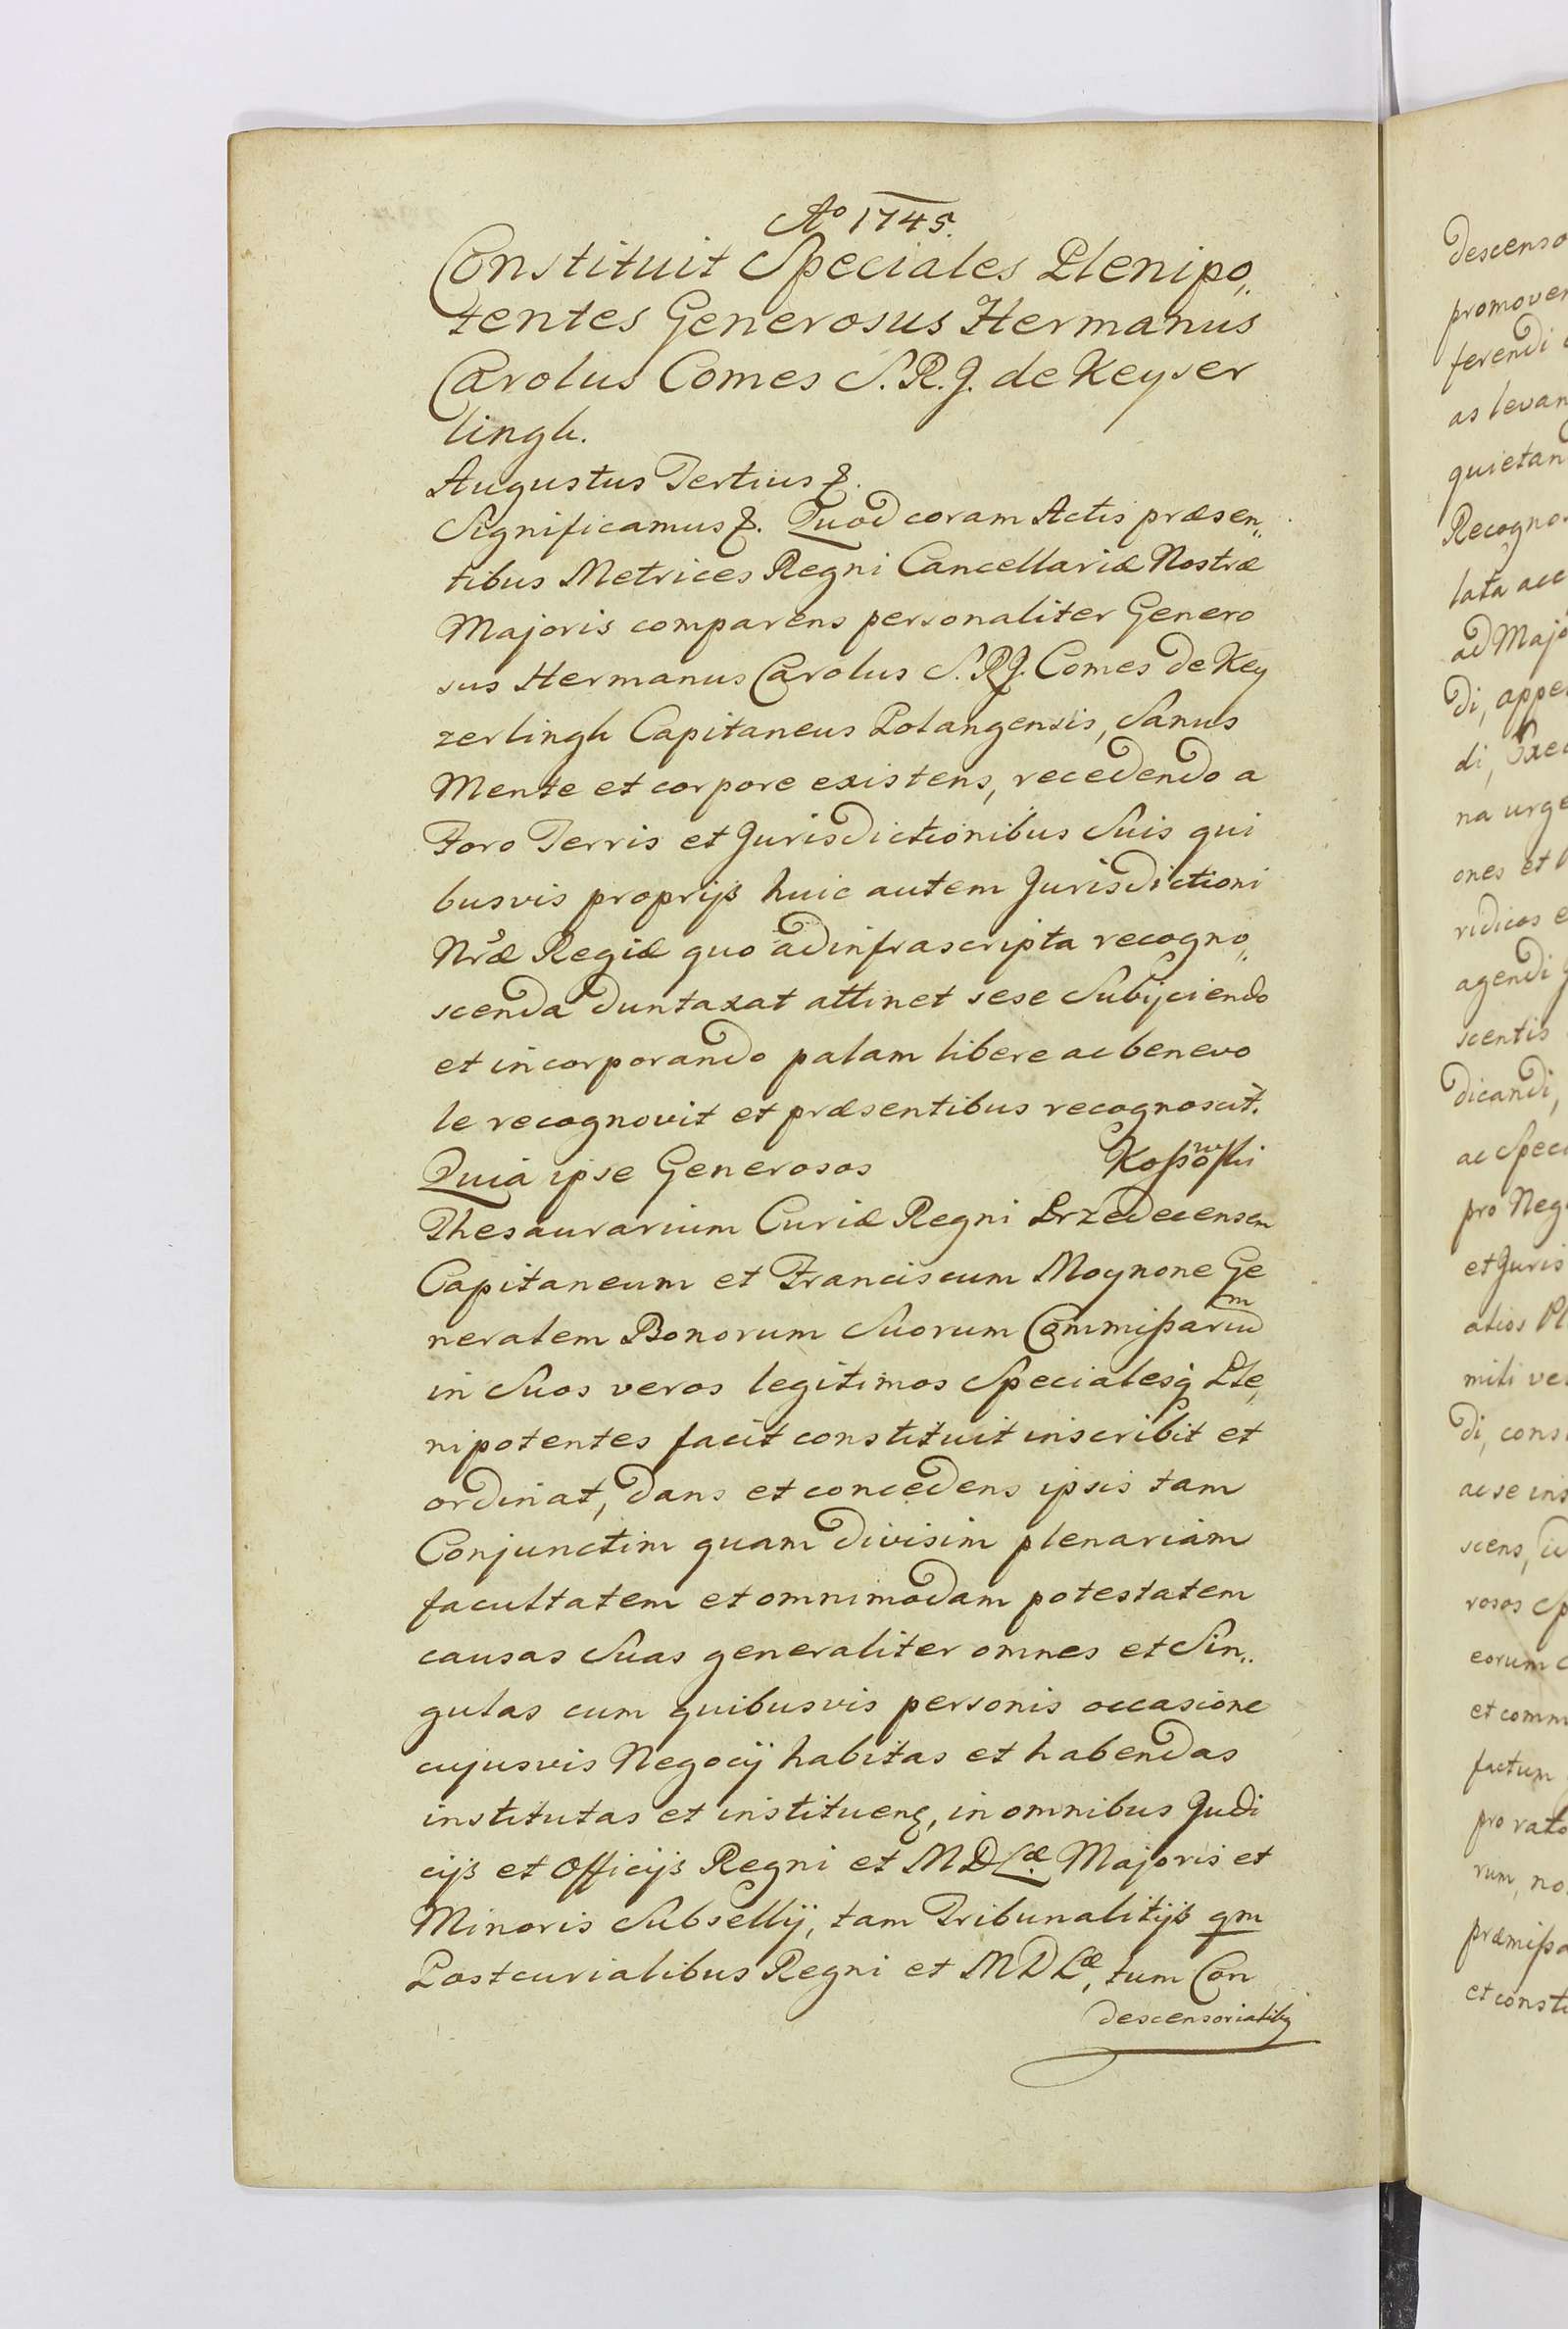 Ao 1745.
Constituit Speciales Plenipo„
tentes Generosus Hermanus
Carolus Comes S. R. J. de Keyser
lingh.
Augustus Tertius &.
Significamus &. Quod coram Actis præsen„
tibus Metrices Regni Cancellariæ Nostræ
Majoris comparens personaliter Genero
sus Hermanus Carolus S. R. J. Comes de Key
zerlingh Capitaneus Polangensis, Sanus
Mente et corpore existens, recedendo a
Foro Terris et Jurisdictionibus Suis qui
busvis proprijs huic autem Jurisdictioni
Nræ Regiæ quo ad infrascripta recogno„
scenda duntaxat attinet sese Subijciendo
et incorporando palam libere ac benevo
le recognovit et præsentibus recognoscit.
Quia ipse Generosos Koßowski
Thesaurarium Curiæ Regni Przedecensem
Capitaneum et Franciscum Moynone Ge
neralem Bonorum Suorum Commißarium
in Suos veros legitimos Specialesq Ple,
nipotentes facit constituit inscribit et
ordinat, dans et concedens ipsis tam
Conjunctim quam divisim plenariam
facultatem et omnimodam potestatem
causas Suas generaliter omnes et Sin„
gulas cum quibusvis personis occasione
cujusvis Negocij habitas et habendas
institutas et instituen, in omnibus Judi
cijs et Officijs Regni et M D Læ Majoris et
Minoris Subsellij, tam Tribunalitijs qm
Postcurialibus Regni et M D Læ, tum Con
descensorialibq
descenso
promoven
ferendi
as levan
quietan
Recogno
lata acc
ad Majo
di, appe
di, Exec
na urge
ones et
ridicos e
agendi
scentis
dicandi,
ac Speci
pro Neg
et Juris
alios Pl
mili ve
di, cons
ac se ins
scens,
rosos Sp
eorum
et comm
factum
pro rato
rum, no
præmißa
et consti